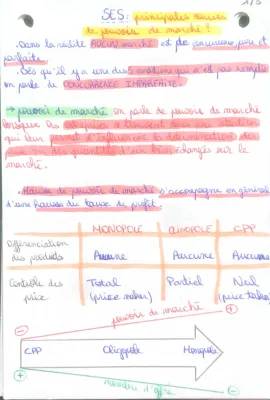 1/3
SES: principales sources
de pouvoirs de marché?
. Dans la réalité AUCUN marché est de concurrence pure et
parfaite.
. Dès qu'il y a une des conditions qui n'est pas remplie
on parle de CONCURRENCE IMPARFAITE.
→ pouvoir de marché on parle de pouvoirs de marché
lorsque les entreprises se trouvent dans une situation
qui leur permet d'influencer la détermination des
prix des quantités d'un bien échangés sur le
marché.
. Hausse de pouvoir de marché s'accompagne en général
d'une hausse du taux de profit.
MONOPOLE OLIGOPOLE CPP
Différenciation
des produits Aucune Aucune Aucune
Contrôle des
prix Total Partiel Nul
(price maker) (price taker)
⊖ pouvoir de marché ⊕
CPP Oligopole Monopole
⊕ nombre d'offre ⊖